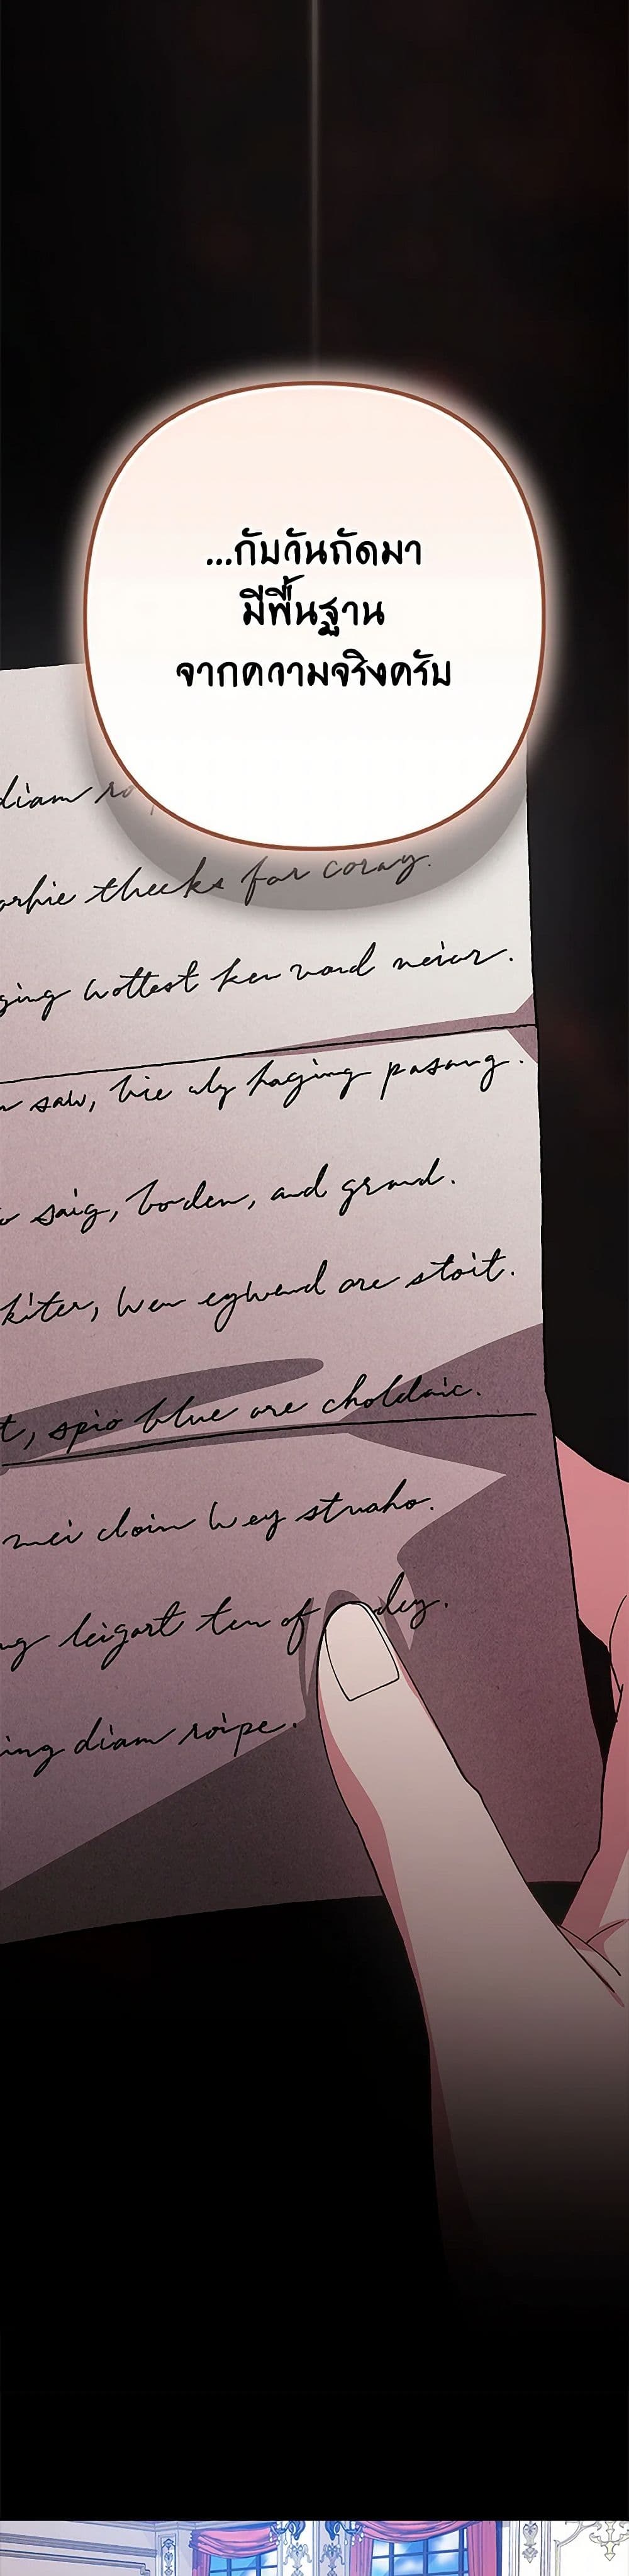 ...กับวันถัดมา
มีพื้นฐาน
จากความจริงครับ
diam
thecks for coray.
ging wottest ken vand neiur.
saw, bie uly haging pasang.
saig, boden, and grand.
kiter, wen eywend are stoit.
t, spio blue are choldaic.
mei cloin wey struaho.
ng leigart ten of dey.
ing diam roipe.